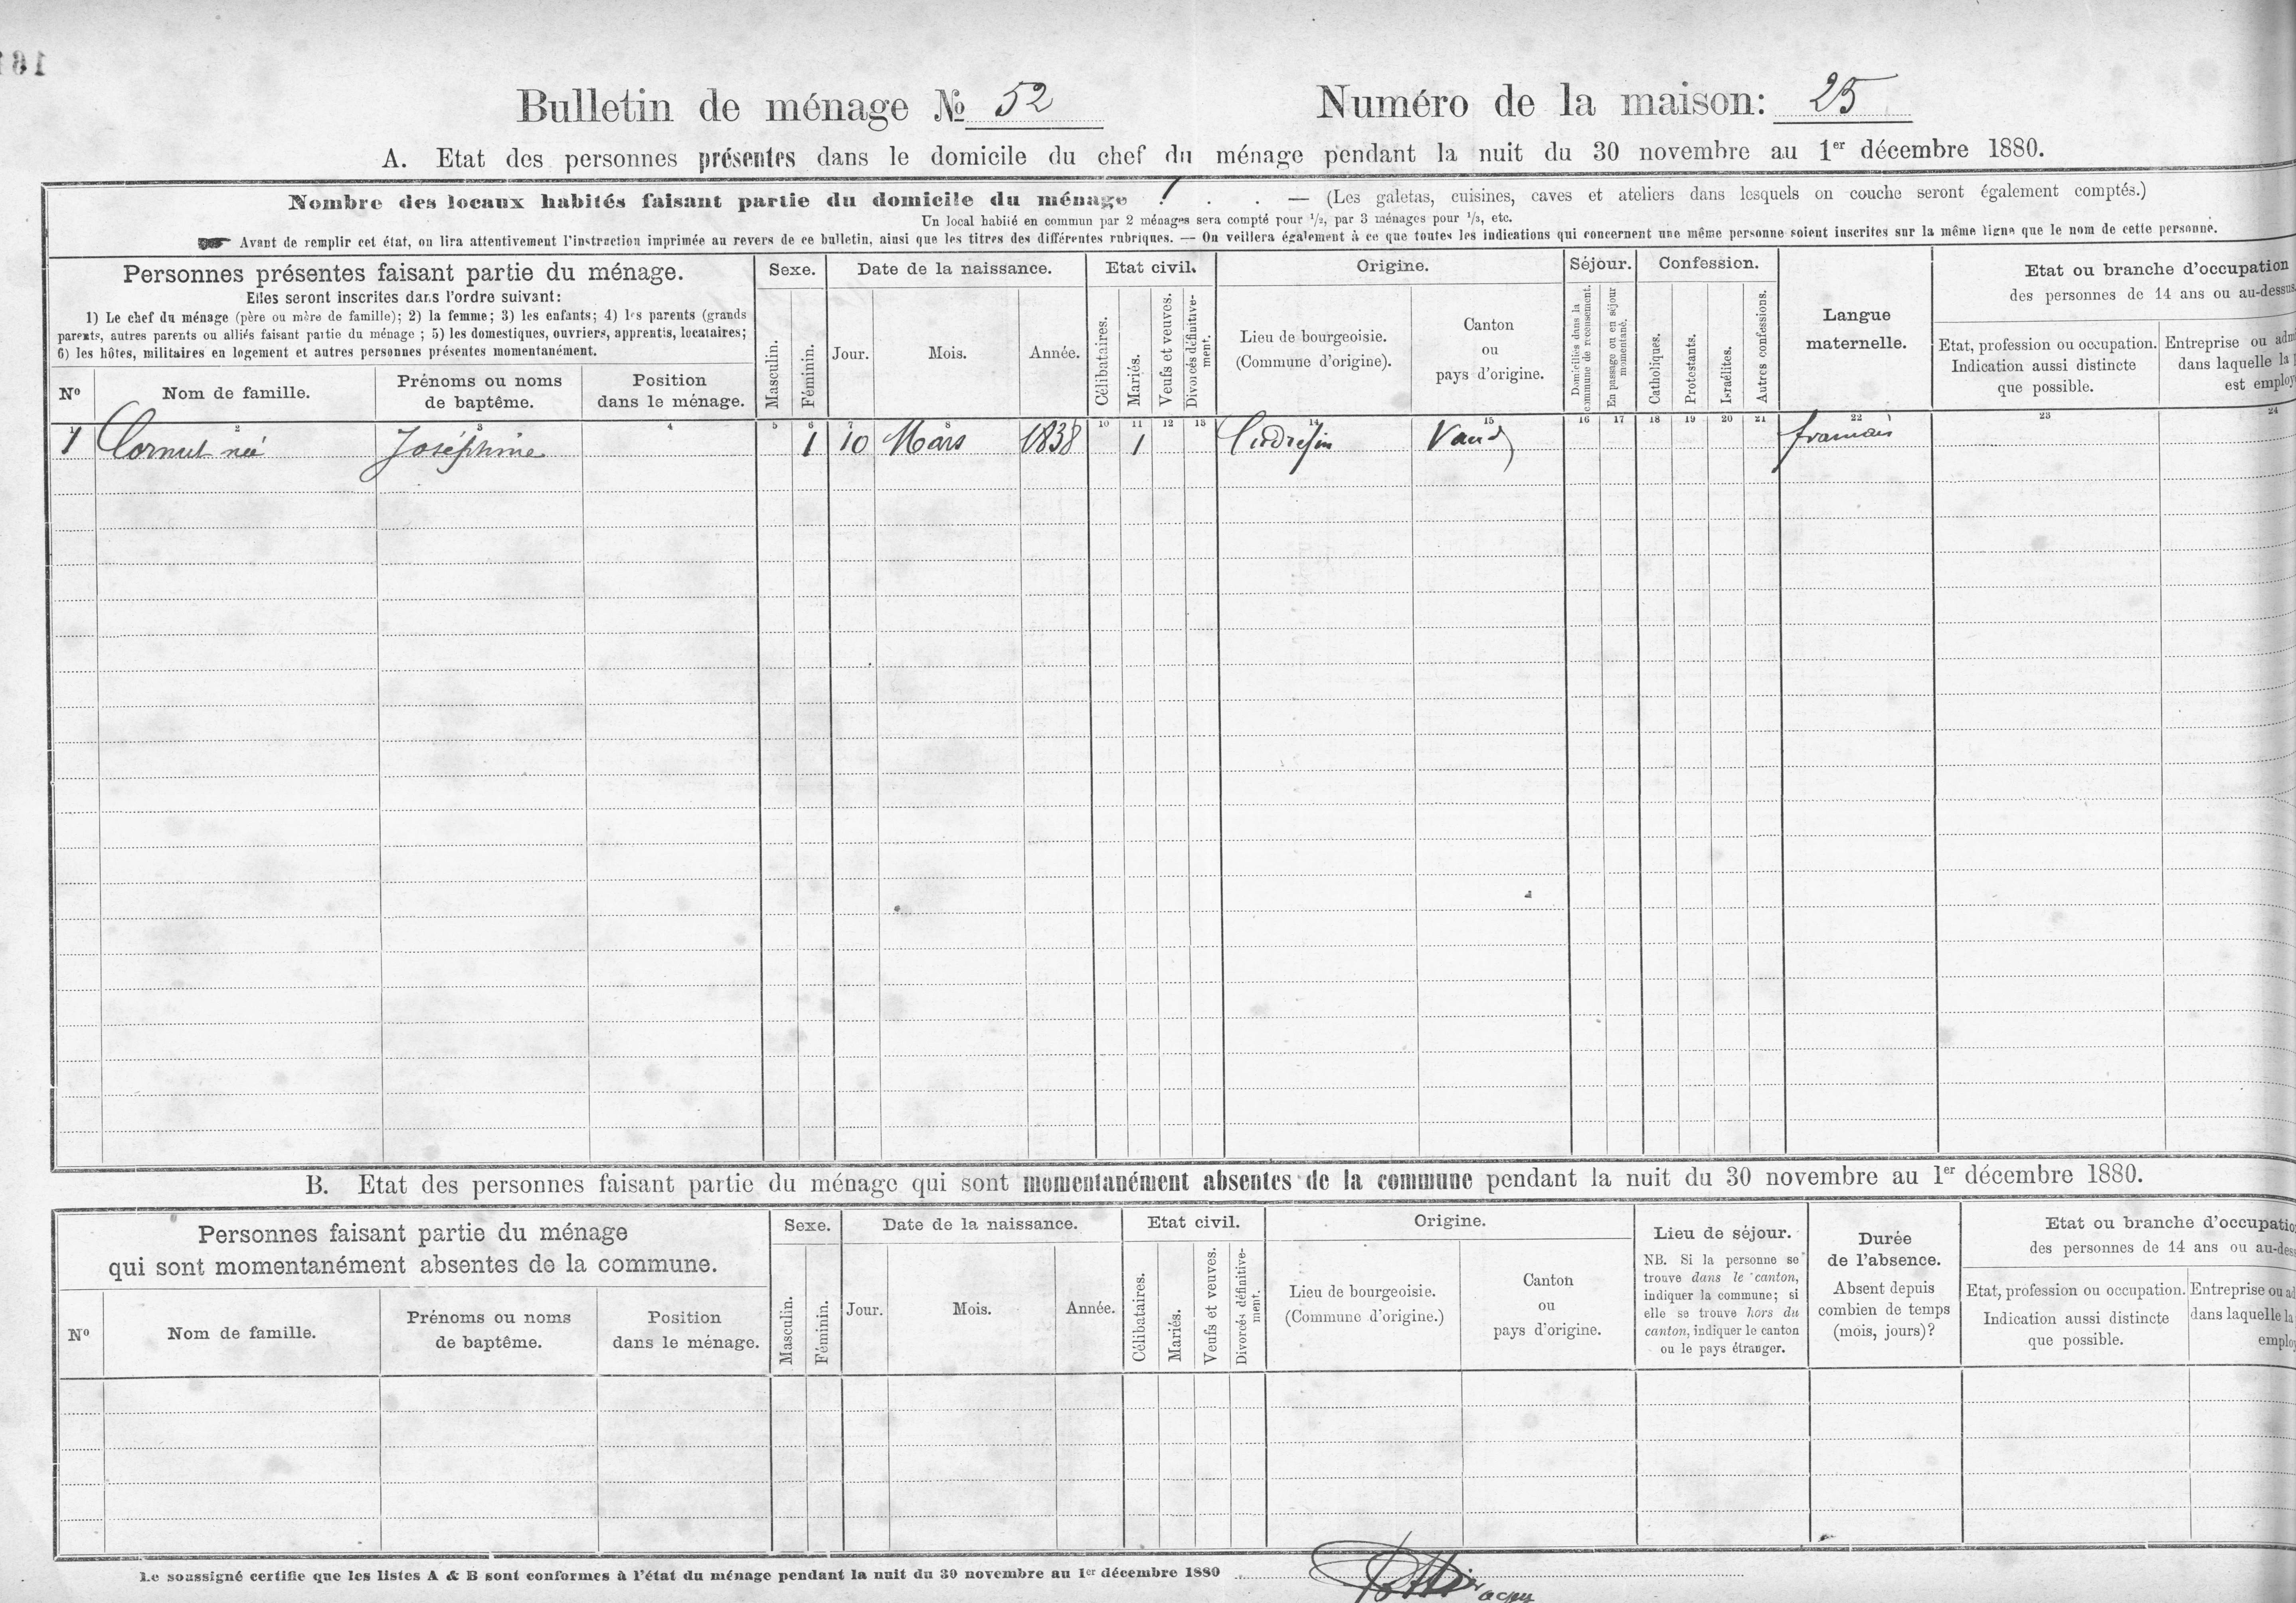 161
Bulletin de ménage № 52 Numéro de la maison: 25
A. Etat des personnes présentes dans le domicile du chef du ménage pendant la nuit du 30 novembre au 1er décembre 1880.
Nombre des locaux habités faisant partie du domicile du ménage 1 . . . — (Les galetas, cuisines, caves et ateliers dans lesquels on couche seront également comptés.)
Un local habité en commun par 2 ménages sera compté pour 1/2, par 3 ménages pour 1/3, etc.
Avant de remplir cet état, on lira attentivement l'instruction imprimée au revers de ce bulletin, ainsi que les titres des différentes rubriques. — On veillera également à ce que toutes les indications qui concernent une même personne soient inscrites sur la même ligne que le nom de cette personne.
Personnes présentes faisant partie du ménage.
Elles seront inscrites dans l'ordre suivant:
1) Le chef du ménage (père ou mère de famille); 2) la femme; 3) les enfants; 4) les parents (grands
parents, autres parents ou alliés faisant partie du ménage ; 5) les domestiques, ouvriers, apprentis, locataires;
6) les hôtes, militaires en logement et autres personnes présentes momentanément.
No
Nom de famille.
Prénoms ou noms
de baptême.
Position
dans le ménage.
Sexe.
Masculin.
Féminin.
Date de la naissance.
Jour.
Mois.
Année.
Etat civil.
Célibataires.
Mariés.
Veufs et veuves.
Divorcés définitive-
ment.
Origine.
Lieu de bourgeoisie.
(Commune d'origine).
Canton
ou
pays d'origine.
Séjour.
Domiciliés dans la
commune de recensement.
En passage ou en séjour
momentané.
Confession.
Catholiques.
Protestants.
Israélites.
Autres confessions.
Langue
maternelle.
Etat ou branche d'occupation
des personnes de 14 ans ou au-dessus
Etat, profession ou occupation.
Indication aussi distincte
que possible.
Entreprise ou adm
dans laquelle la
est employ
1 2 3 4 5 6 7 8 9 10 11 12 13 14 15 16 17 18 19 20 21 22 23 24
1 Cornut née Joséphine 1 10 Mars 1838 1 Cudrefin Vaud francais
B. Etat des personnes faisant partie du ménage qui sont momentanément absentes de la commune pendant la nuit du 30 novembre au 1er décembre 1880.
Personnes faisant partie du ménage
qui sont momentanément absentes de la commune.
No
Nom de famille.
Prénoms ou noms
de baptême.
Position
dans le ménage.
Sexe.
Masculin.
Féminin.
Date de la naissance.
Jour.
Mois.
Année.
Etat civil.
Célibataires.
Mariés.
Veufs et veuves.
Divorcés définitive-
ment.
Origine.
Lieu de bourgeoisie.
(Commune d'origine.)
Canton
ou
pays d'origine.
Lieu de séjour.
NB. Si la personne se
trouve dans le canton,
indiquer la commune; si
elle se trouve hors du
canton, indiquer le canton
ou le pays étranger.
Durée
de l'absence.
Absent depuis
combien de temps
(mois, jours)?
Etat ou branche d'occupatio
des personnes de 14 ans ou au-dess
Etat, profession ou occupation.
Indication aussi distincte
que possible.
Entreprise ou ad
dans laquelle la
employ
Le soussigné certifie que les listes A & B sont conformes à l'état du ménage pendant la nuit du 30 novembre au 1er décembre 1880